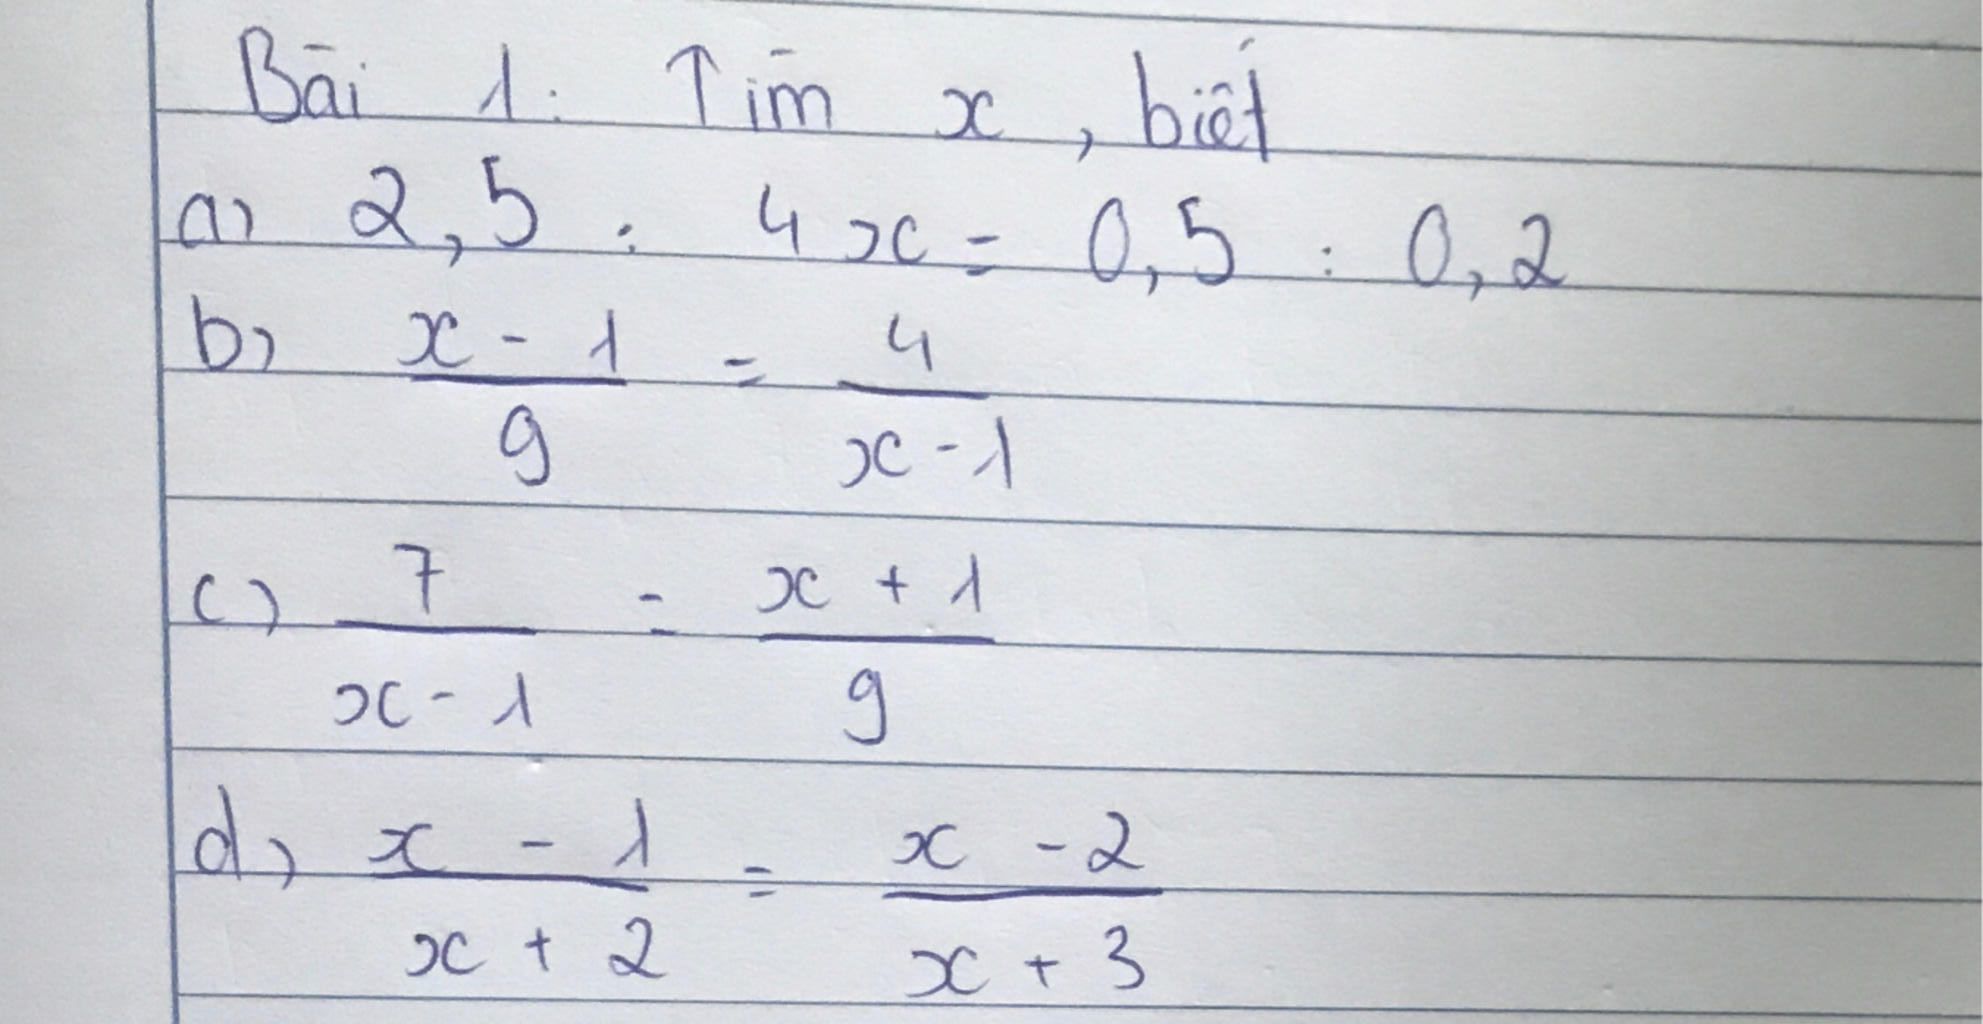 Bài 1: Tìm x, biết
a) 2,5 : 4x = 0,5 : 0,2
b) x - 1 / 9 = 4 / x - 1
c) 7 / x - 1 = x + 1 / 9
d) x - 1 / x + 2 = x - 2 / x + 3